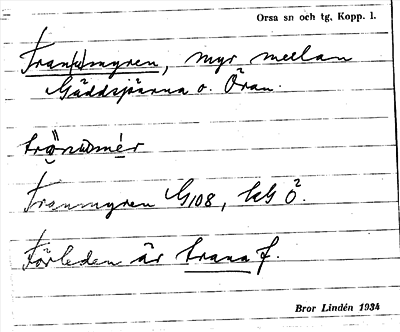 Orsa sn och tg, Kopp. l.
Tran(u)myren, myr mellan
Gäddtjärna o. Öran.
Tranmyren G108, kbl Ö.
Förleden är trana f.
Bror Lindén 1934